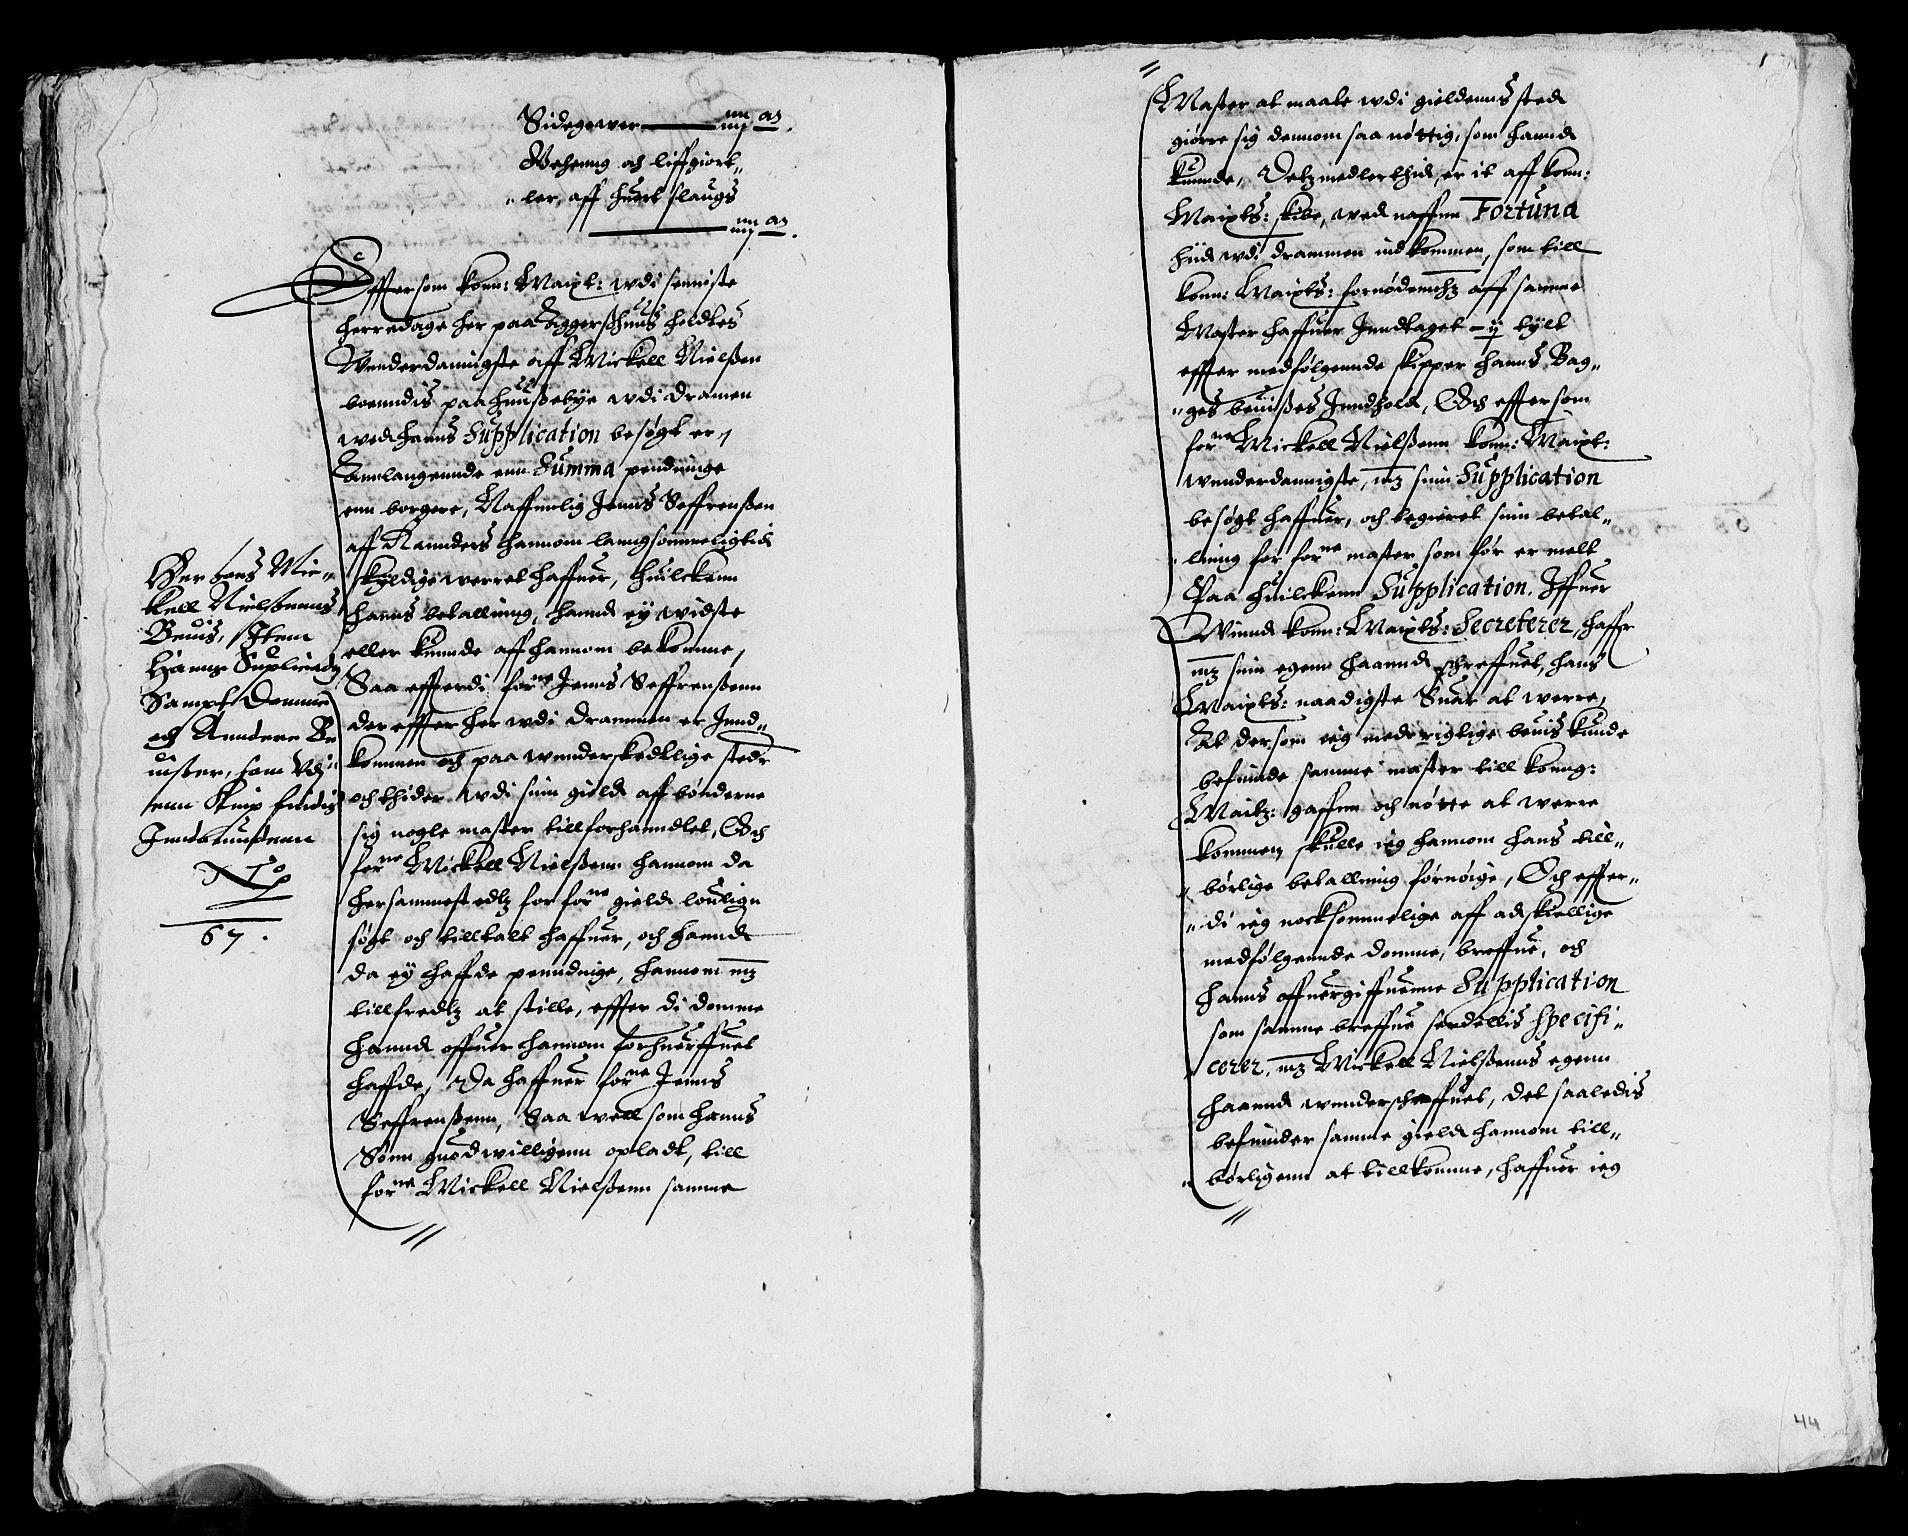 Sidegewer
Gehenng och liffgiort„
„ler, aff huert slaugs
Effter som konn: Maixt: wdi seniste
herredage her paa Aggerßhuus holdtes
Wnderdannigste aff Mickell Nielßen
boenndis paa Huußebye wdi Dramen
wed hanns Supplication besøgt er,
Annlangennde enn Summa pendinge
enn borgere, Naffnnlig Jenns Seffrenßen
aff Rannders hannom lanngsommeligtid
skyldige werret haffuer, Huilckenn
hanns betallinng, hannd ey widste
eller kunnde aff hannom bekomme,
Saa effterdi forne Jenns Seffrenßenn
der effter her wdi Drammen er Innd„
kommen och paa wnderskedtlige steder
och thider wdi sinn gield aff bønderne
sig nogle master tillforhanndlet, Och
forne Mickell Nielßenn hannom da
hersammestedtz for forne gield loulign
søgt och tilltalt haffuer, och hannd
da ey haffde penndinge, hannom mz
tillfredtz at stille, effter di domme
hannd offuer hannom forhuerffuet
haffde, Da haffuer forne Jenns
Seffrenßenn, Saa well som hanns
Sønn guodwilligenn opladt, till
forne Mickell Nielßenn samme
Her hoes Mic„
kell Nielßenns
Beuis, Item
Hanns Suplicatz
Sampt Domme
och Anndere Be
uißer, som Vdj
enn Knip findis
Inndbundenn
67.
Master at maate wdi gieldenns sted
giørre sig dennom saa nøttig, som hannd
kunnde, Detzmedlerthid, er it aff konn:
Maixts: skibe, wed naffnn Fortuna
hiid wdi drammen ind kommen, som till
konn: Maixts: fornødennhz aff samme
Master haffuer Inndtaget - ij tylt
effter medfølgennde skipper Hanns Bag„
„ges beuißes Inndhold, Och effter som
forne Mickell Nielßenn konn: Maixt:
wnderdannigste, mz sinn Supplication
besøgt haffuer, och begieret sinn betal„
lning for forne master som før er melt
Paa huilckenn Supplication. Iffuer
Winnd konn: Maixts: Secreterer, haffr
mz sinn egenn haannd schreffuet, hans
Maixts: naadigste Suar at werre,
At dersom ieg med rigtige beuis kunde
befinnde samme master till konng:
Maitz: gaffnn och nøtte at werre
kommen, skulle ieg hannom hans till„
„børlige betallning fornøige, Och effter„
„di ieg nocksommelige aff adskiellige
medfølgennde domme, breffue, och
hanns offuergiffuenne Supplication
som samme breffue serdellis specifi„
cerer, mz Mickell Nielßenns egenn
haannd wnderschreffuet, det saaledis
befinnder samme gield hannom till„
„børligenn at tillkomme, haffuer ieg
44